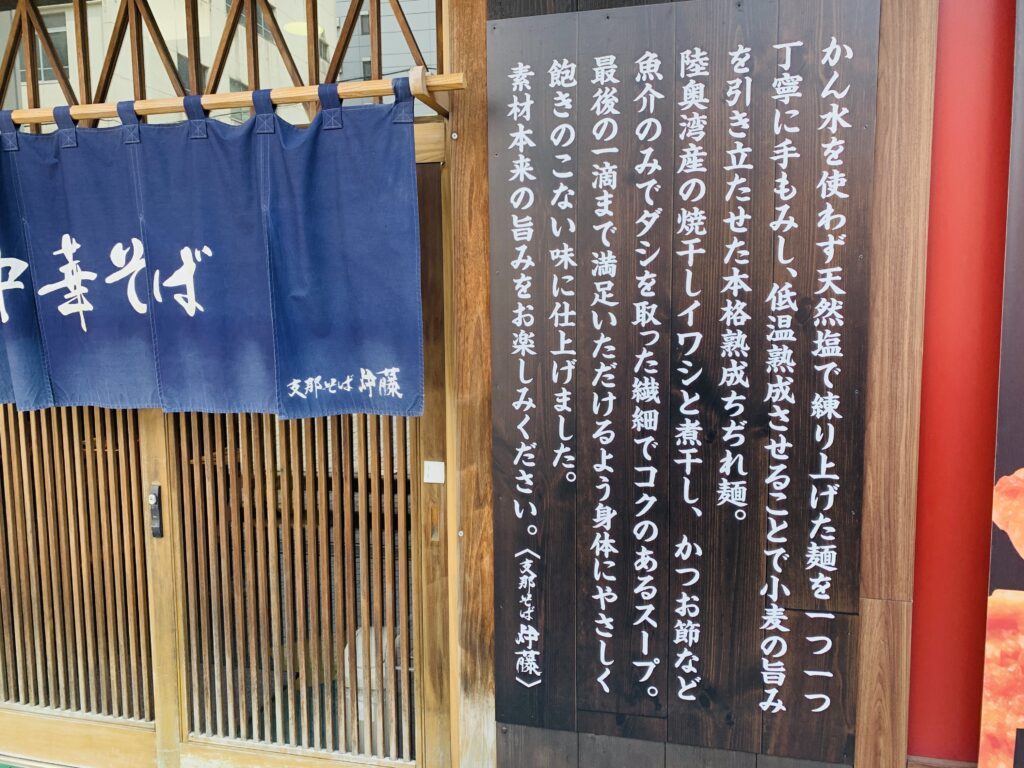 かん水を使わず天然塩で練り上げた麺を一つ一つ
丁寧に手もみし、低温熟成させることで小麦の旨み
を引き立たせた本格熟成ちぢれ麺。
陸奥湾産の焼干しイワシと煮干し、かつお節など
魚介のみでダシを取った繊細でコクのあるスープ。
最後の一滴まで満足いただけるよう身体にやさしく
飽きのこない味に仕上げました。
素材本来の旨みをお楽しみください。〈支那そば 伊藤〉
中華そば
支那そば 伊藤